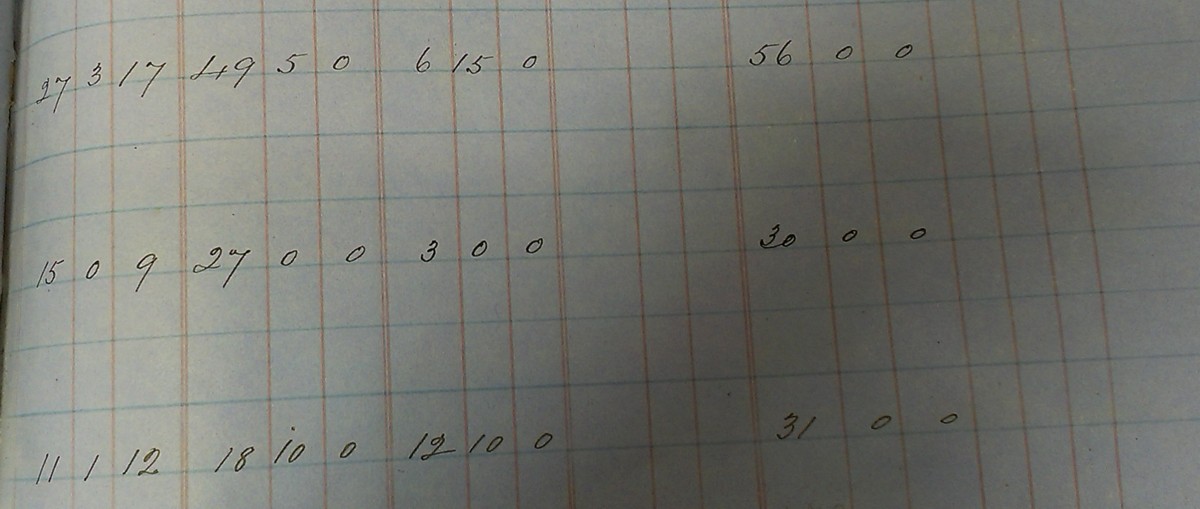 27 3 17 49 5 0 6 15 0 56 0 0
15 0 9 27 0 0 3 0 0 30 0 0
11 1 12 18 10 0 12 10 0 31 0 0